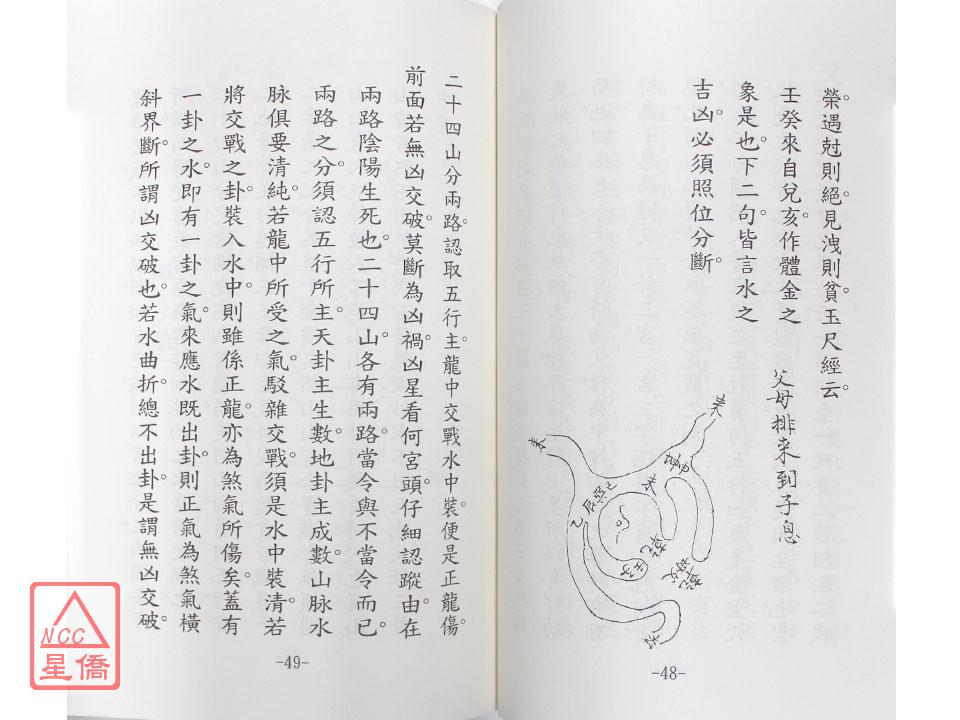 榮。遇尅則絕。見洩則貧。玉尺經云。
壬癸來自兌。亥作體金之
象是也。下二句皆言水之
吉凶。必須照位分斷。
父母排來到子息
-48-
二十四山分兩路。認取五行主。龍中交戰水中裝。便是正龍傷。
前面若無凶交破。莫斷為凶禍。凶星看何宮頭。仔細認蹤由。在
兩路陰陽生死也。二十四山各有兩路。當令與不當令而已。
兩路之分。須認五行所主。天卦主生數。地卦主成數。山脉水
脉俱要清純。若龍中所受之氣。駁雜交戰。須是水中裝清。若
將交戰之卦。裝入水中。則雖係正龍。亦為煞氣所傷矣。蓋有
一卦之水。即有一卦之氣。來應水既出卦。則正氣為煞氣橫
斜界斷。所謂凶交破也。若水曲折。總不出卦。是謂無凶交破。
-49-
NCC
星僑